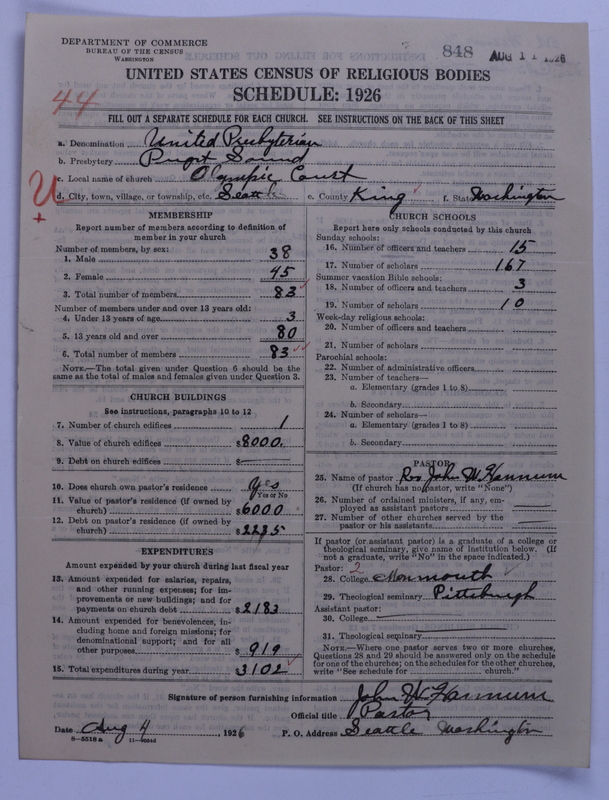 DEPARTMENT OF COMMERCE
BUREAU OF THE CENSUS
WASHINGTON
848
AUG 11 1926
UNITED STATES CENSUS OF RELIGIOUS BODIES
SCHEDULE: 1926
44
FILL OUT A SEPARATE SCHEDULE FOR EACH CHURCH. SEE INSTRUCTIONS ON THE BACK OF THIS SHEET
a. Denomination United Presbyterian
b. Presbytery Puget Sound
c. Local name of church Olympic Court
U
+
d. City, town, village, or township, etc. Seattle e. County King f. State Washington
MEMBERSHIP
Report number of members according to definition of
member in your church
Number of members, by sex:
1. Male 38
2. Female 45
3. Total number of members 83
Number of members under and over 13 years old:
4. Under 13 years of age 3
5. 13 years old and over 80
6. Total number of members 83
NOTE.—The total given under Question 6 should be the
same as the total of males and females given under Question 3.
CHURCH BUILDINGS
See instructions, paragraphs 10 to 12
7. Number of church edifices 1
8. Value of church edifices $8000.
9. Debt on church edifices $
10. Does church own pastor's residence Yes
Yes or No
11. Value of pastor's residence (if owned by
church) $6000
12. Debt on pastor's residence (if owned by
church) $
EXPENDITURES
Amount expended by your church during last fiscal year
13. Amount expended for salaries, repairs,
and other running expenses; for im-
provements or new buildings; and for
payments on church debt $2183
14. Amount expended for benevolences, in-
cluding home and foreign missions; for
denominational support; and for all
other purposes $919
15. Total expenditures during year $3102
CHURCH SCHOOLS
Report here only schools conducted by this church
Sunday schools:
16. Number of officers and teachers 15
17. Number of scholars 167
Summer vacation Bible schools:
18. Number of officers and teachers 3
19. Number of scholars 10
Week-day religious schools:
20. Number of officers and teachers
21. Number of scholars
Parochial schools:
22. Number of administrative officers
23. Number of teachers—
a. Elementary (grades 1 to 8)
b. Secondary
24. Number of scholars—
a. Elementary (grades 1 to 8)
b. Secondary
PASTOR
25. Name of pastor Rev John W. Hannum
(If church has no pastor, write "None")
26. Number of ordained ministers, if any, em-
ployed as assistant pastors
27. Number of other churches served by the
pastor or his assistants
If pastor (or assistant pastor) is a graduate of a college or
theological seminary, give name of institution below. (If
not a graduate, write "No" in the space indicated.)
Pastor: 2
28. College Monmouth
29. Theological seminary Pittsburgh
Assistant pastor:
30. College
31. Theological seminary
NOTE.—Where one pastor serves two or more churches,
Questions 28 and 29 should be answered only on the schedule
for one of the churches; on the schedules for the other churches,
write "See schedule for church."
Signature of person furnishing information John W Hannum
Official title Pastor
Date Aug 4, 1926 P. O. Address Seattle Washington
8—5518 a